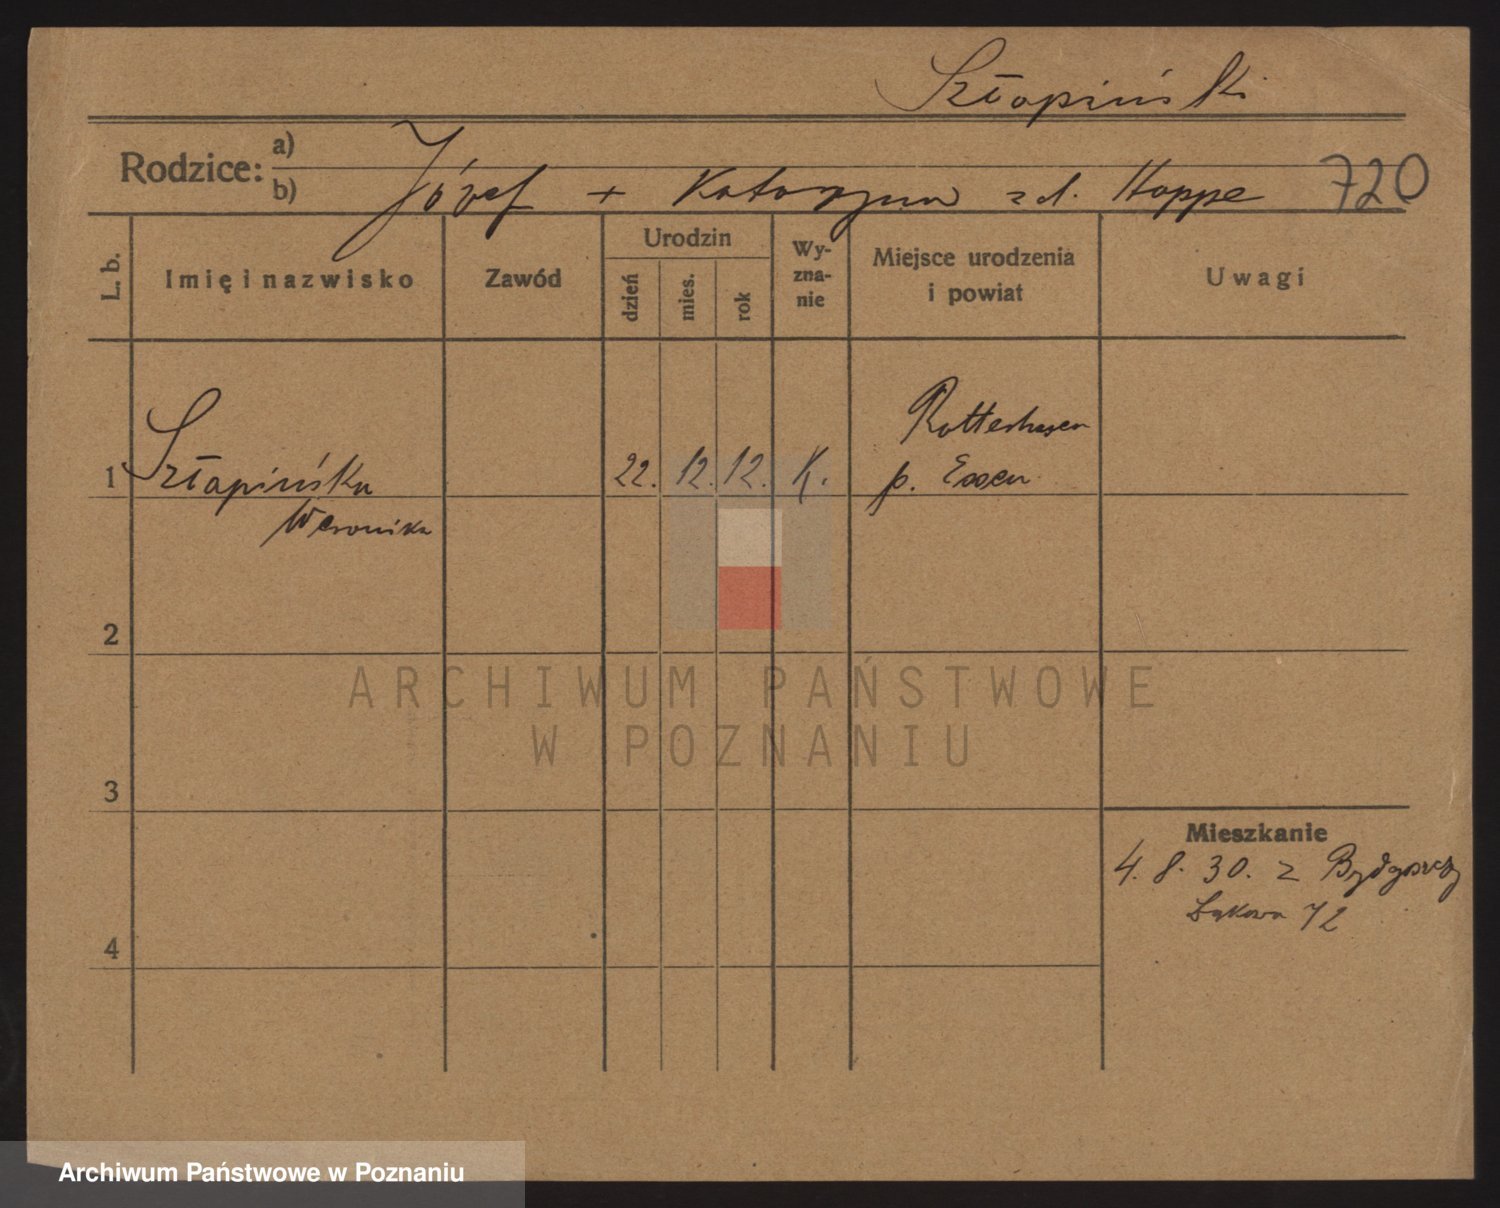 Szłapiński
Rodzice: a)
b) Józef + Katarzyna z d. Hoppe 720
L. b. Imię i nazwisko Zawód Urodzin dzień mies. rok Wy-zna-nie Miejsce urodzenia i powiat Uwagi
1 Szłapińska 22. 12. 12. K. Rotthausen
Weronika p. Essen
2
ARCHIWUM PAŃSTWOWE
W POZNANIU
3
Mieszkanie
4. 8. 30. z Bydgoszczy
Łąkowa 72
4
Archiwum Państwowe w Poznaniu